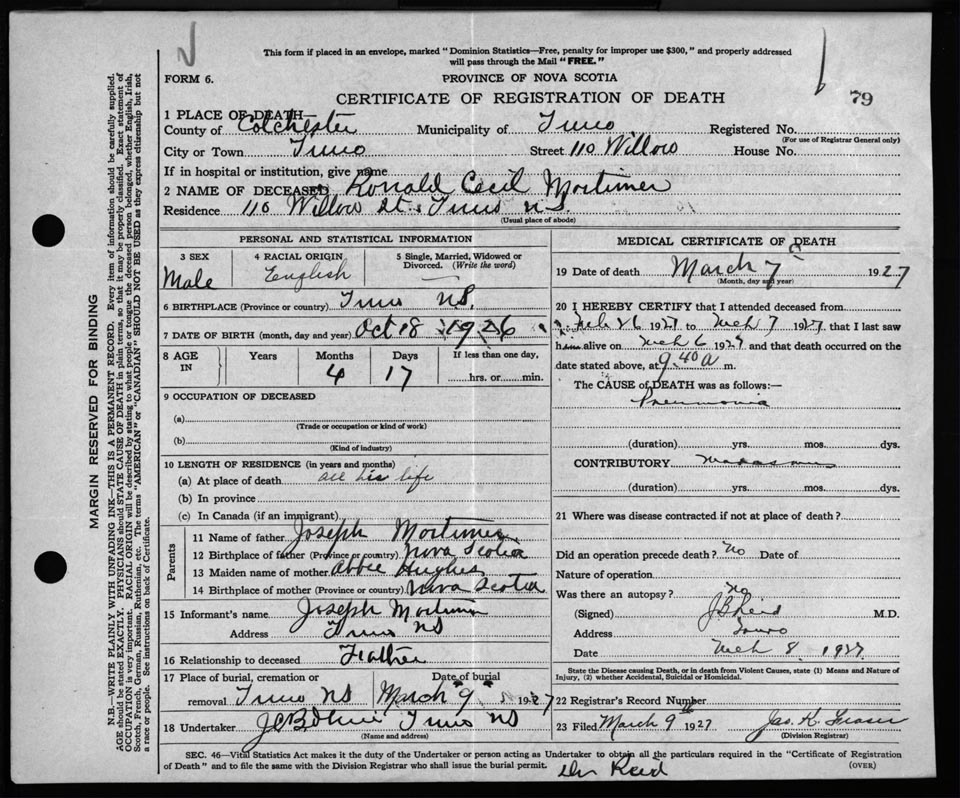 This form if placed in an envelope, marked "Dominion Statistics—Free, penalty for improper use $300," and properly addressed
will pass through the Mail "FREE."
FORM 6.
PROVINCE OF NOVA SCOTIA
CERTIFICATE OF REGISTRATION OF DEATH
79
1 PLACE OF DEATH
County of Colchester Municipality of Truro Registered No.
(For use of Registrar General only)
City or Town Truro Street 110 Willow House No.
If in hospital or institution, give name
2 NAME OF DECEASED Ronald Cecil Mortimer
Residence 110 Willow St. Truro N.S.
(Usual place of abode)
MARGIN RESERVED FOR BINDING
N.B.—WRITE PLAINLY WITH UNFADING INK—THIS IS A PERMANENT RECORD. Every item of information should be carefully supplied.
AGE should be stated EXACTLY. PHYSICIANS should STATE CAUSE OF DEATH in plain terms, so that it may be properly classified. Exact statement of
OCCUPATION is very important. RACIAL ORIGIN will be described by stating to what people or tongue the deceased person belonged, whether English, Irish,
Scotch, French, German, Russian, Ruthenian, etc. The terms "AMERICAN" or "CANADIAN" SHOULD NOT BE USED as they express citizenship but not
a race or people. See instructions on back of Certificate.
PERSONAL AND STATISTICAL INFORMATION
3 SEX
Male
4 RACIAL ORIGIN
English
5 Single, Married, Widowed or
Divorced. (Write the word)
6 BIRTHPLACE (Province or country) Truro N.S.
7 DATE OF BIRTH (month, day and year) Oct 18 1926
8 AGE IN
Years Months Days If less than one day,
4 17 hrs. or min.
9 OCCUPATION OF DECEASED
(a)
(Trade or occupation or kind of work)
(b)
(Kind of industry)
10 LENGTH OF RESIDENCE (in years and months)
(a) At place of death all his life
(b) In province
(c) In Canada (if an immigrant)
Parents
11 Name of father Joseph Mortimer
12 Birthplace of father (Province or country) Nova Scotia
13 Maiden name of mother Abbie Hughes
14 Birthplace of mother (Province or country) Nova Scotia
15 Informant's name Joseph Mortimer
Address Truro NS
16 Relationship to deceased Father
17 Place of burial, cremation or Date of burial
removal Truro NS March 9 1927
18 Undertaker Truro NS
(Name and address)
MEDICAL CERTIFICATE OF DEATH
19 Date of death March 7 1927
(Month, day and year)
20 I HEREBY CERTIFY that I attended deceased from
Feb 26 1927 to Mch 7 1927 that I last saw
him alive on Mch 6 1927 and that death occurred on the
date stated above, at 9 40 a m.
The CAUSE of DEATH was as follows:—
Pneumonia
(duration) yrs. mos. dys.
CONTRIBUTORY Marasmus
(duration) yrs. mos. dys.
21 Where was disease contracted if not at place of death?
Did an operation precede death? No Date of
Nature of operation
Was there an autopsy? No
(Signed) J B Reid M.D.
Address Truro
Date Mch 8 1927
State the Disease causing Death, or in death from Violent Causes, state (1) Means and Nature of
Injury, (2) whether Accidental, Suicidal or Homicidal.
22 Registrar's Record Number
23 Filed March 9th 1927 Jas. K. Fraser
(Division Registrar)
SEC. 46—Vital Statistics Act makes it the duty of the Undertaker or person acting as Undertaker to obtain all the particulars required in the "Certificate of Registration
of Death" and to file the same with the Division Registrar who shall issue the burial permit.
(OVER)
Dr Reid